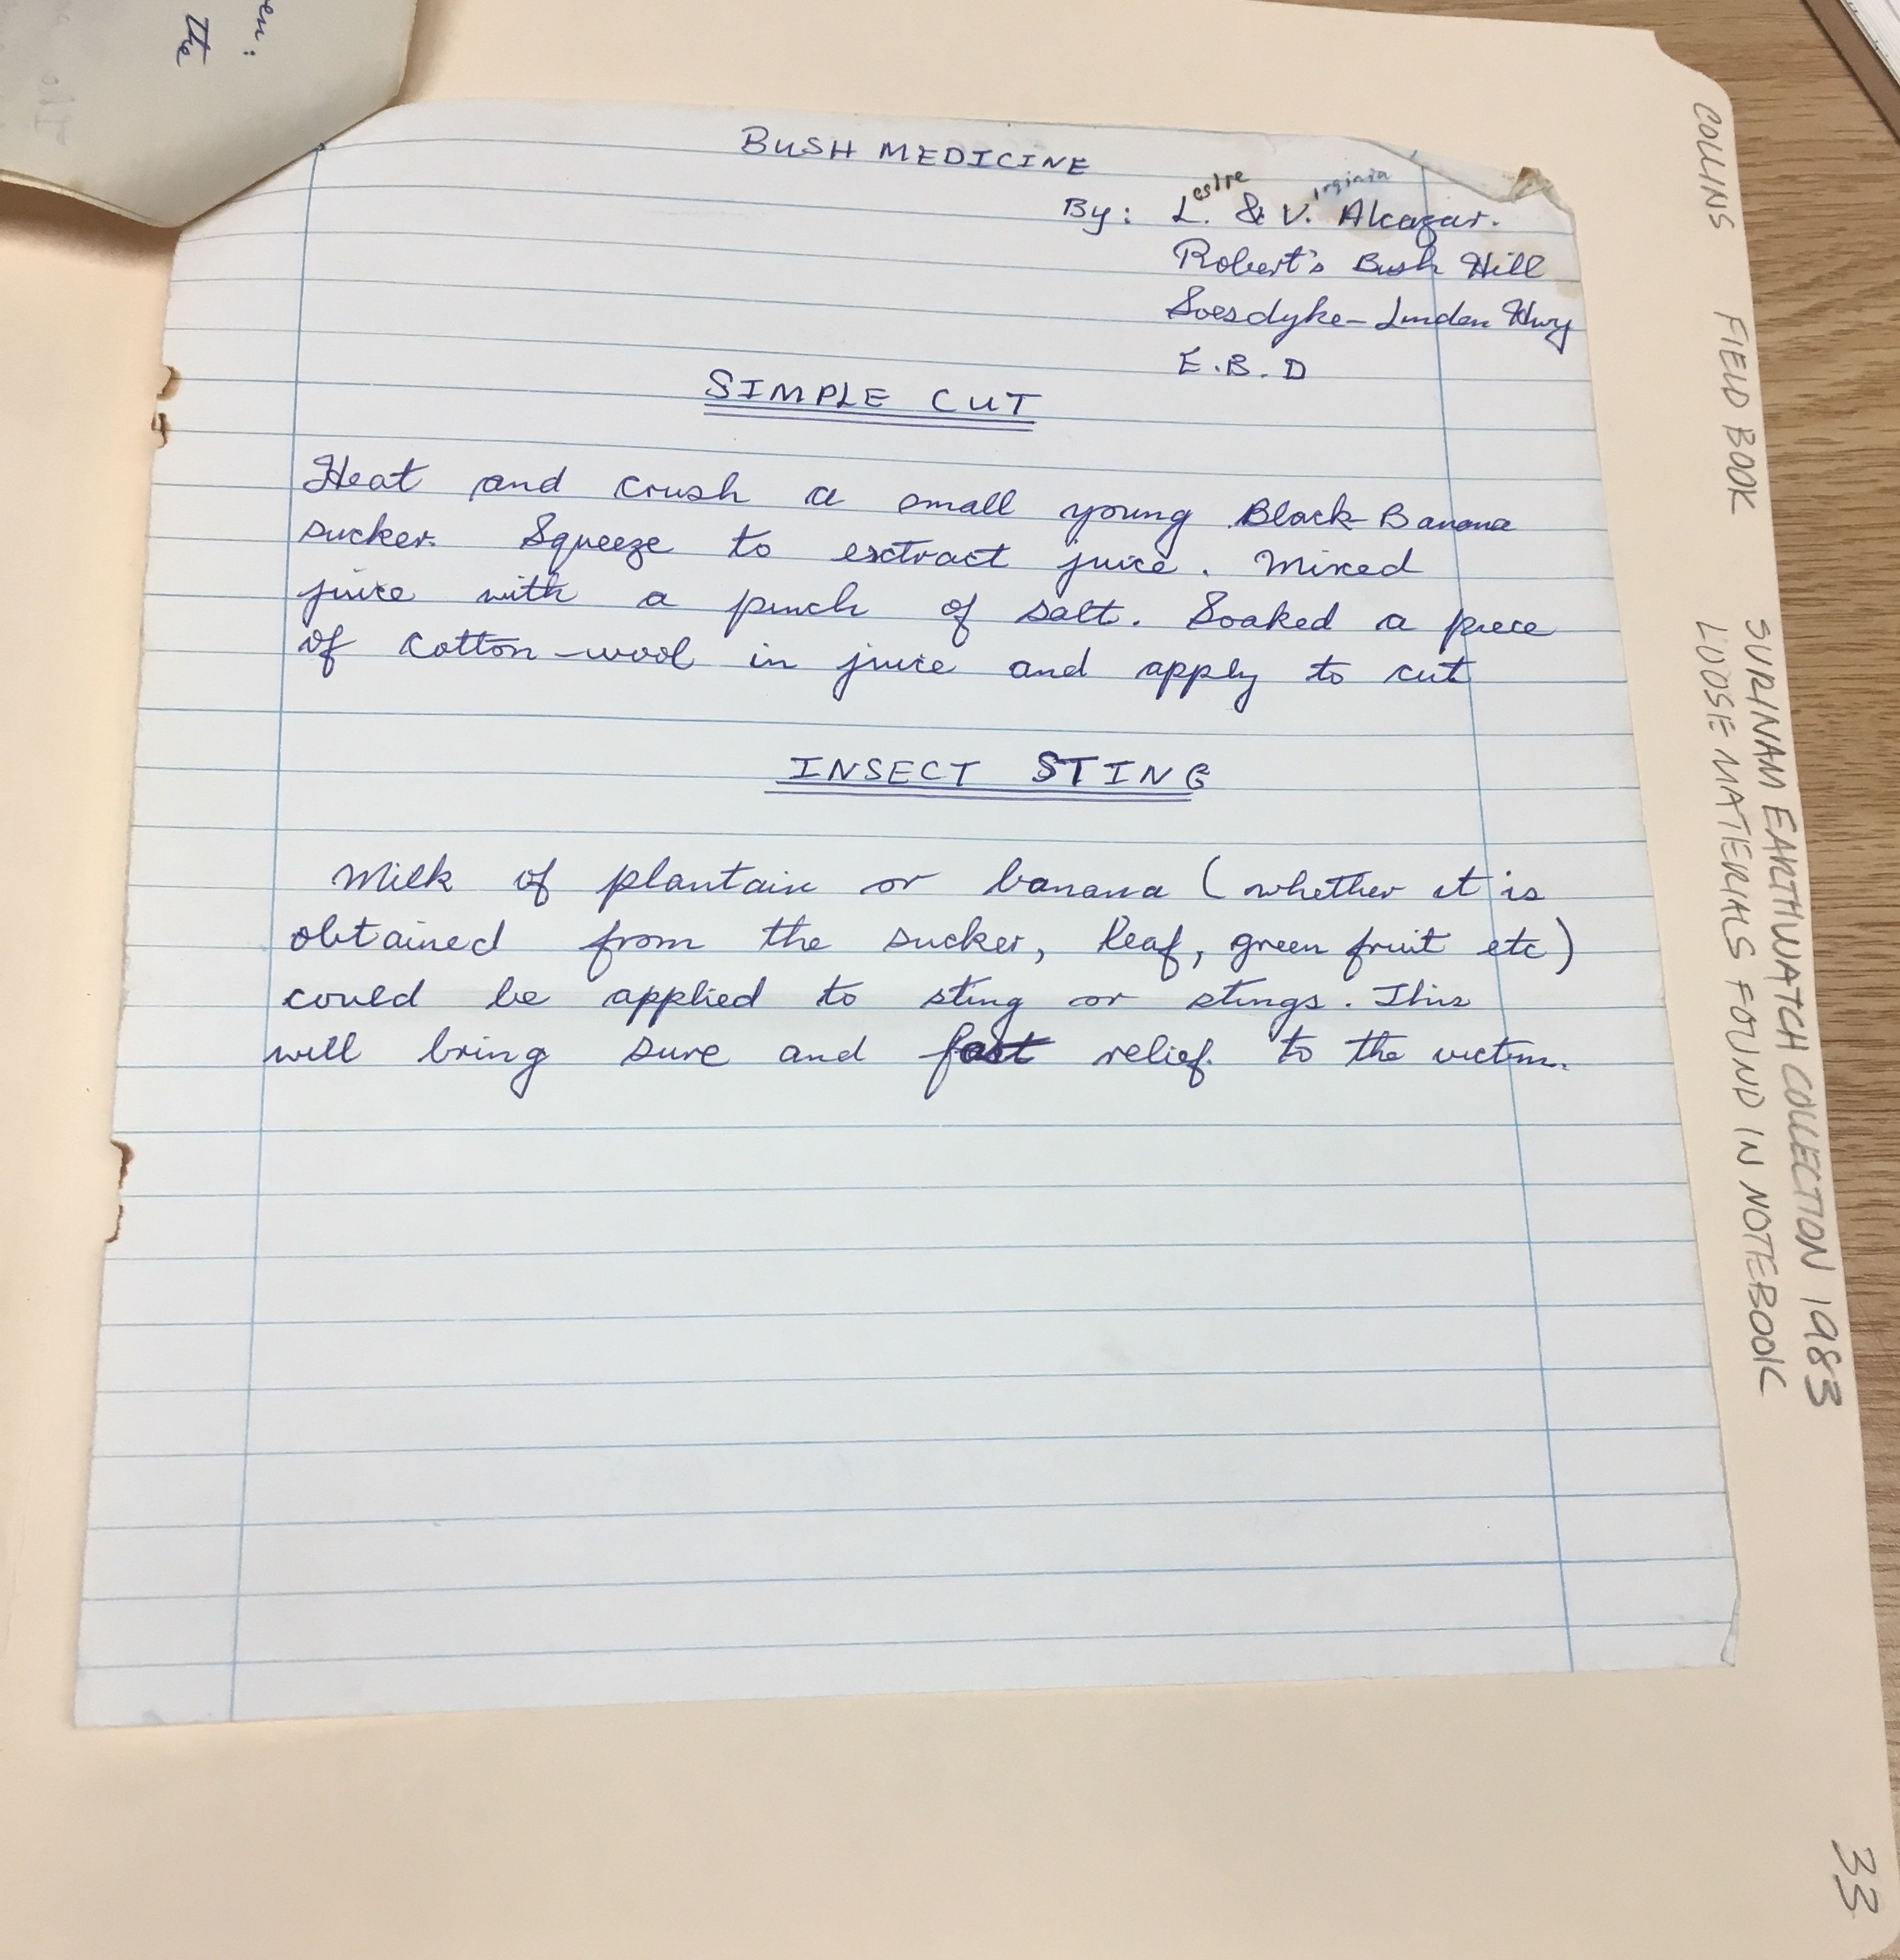 en:
the
BUSH MEDICINE
eslre irginia
By: L. & V. Alcazar.
Robert's Bush Hill
Soesdyke-Linden Hwy
E.B.D
SIMPLE CUT
Heat and crush a small young Black Banana
sucker. Squeeze to exctract juice. Mixed
juice with a pinch of salt. Soaked a piece
of cotton-wool in juice and apply to cut
INSECT STING
Milk of plantain or banana (whether it is
obtained from the sucker, leaf, green fruit etc)
could be applied to sting or stings. This
will bring sure and fast relief. to the victim.
COLLINS FIELD BOOK SURINAM EARTHWATCH COLLECTION 1983
LOOSE MATERIALS FOUND IN NOTEBOOK
33